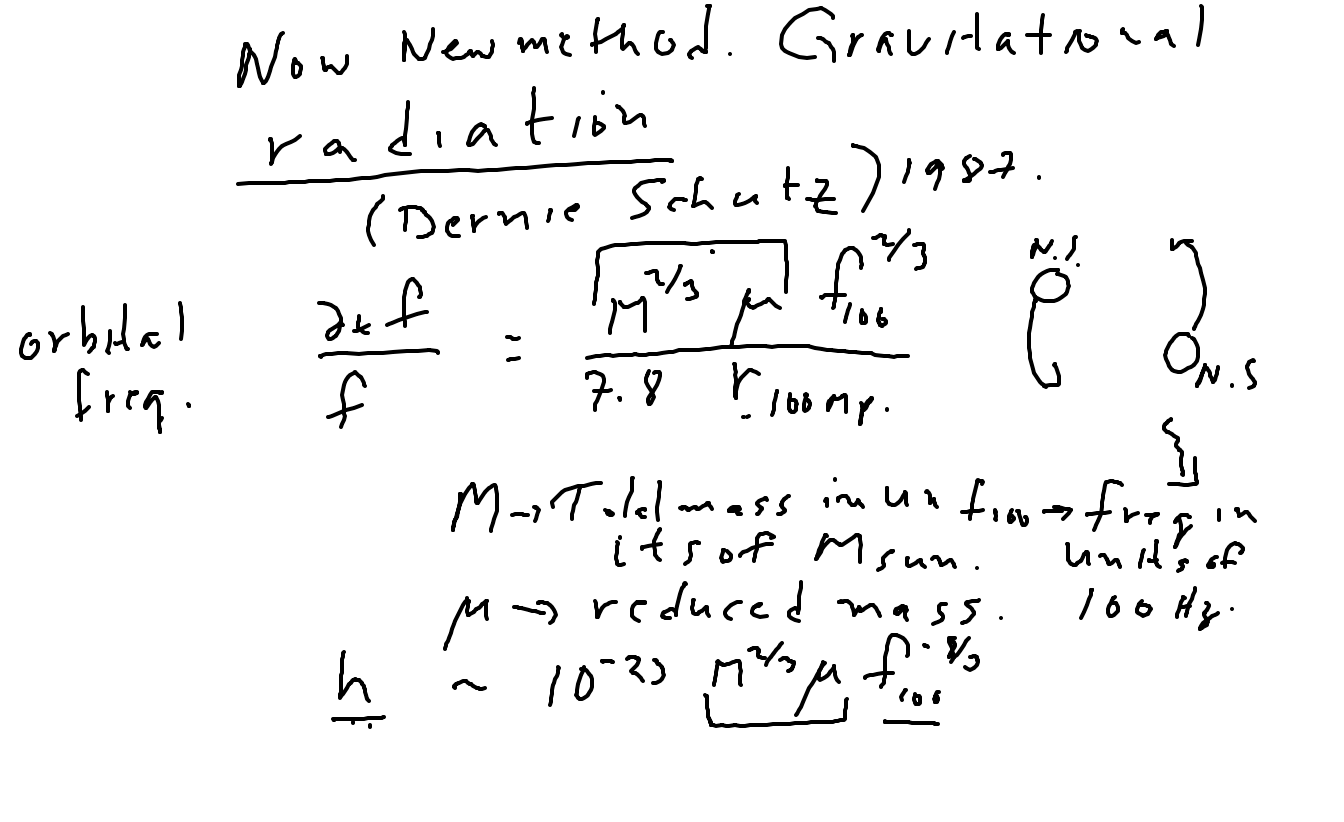 Now New method. Gravitational
radiation
(Bernie Schutz) 1987.
orbital freq.
∂ₜf / f = M^2/3 μ f₁₀₀^2/3 / 7.8 r₁₀₀ Mp.
N.S.
N.S
M → Total mass in un
its of M sun.
f₁₀₀ → freq in
units of
100 Hz.
μ → reduced mass.
h ~ 10^-23 M^2/3 μ f₁₀₀